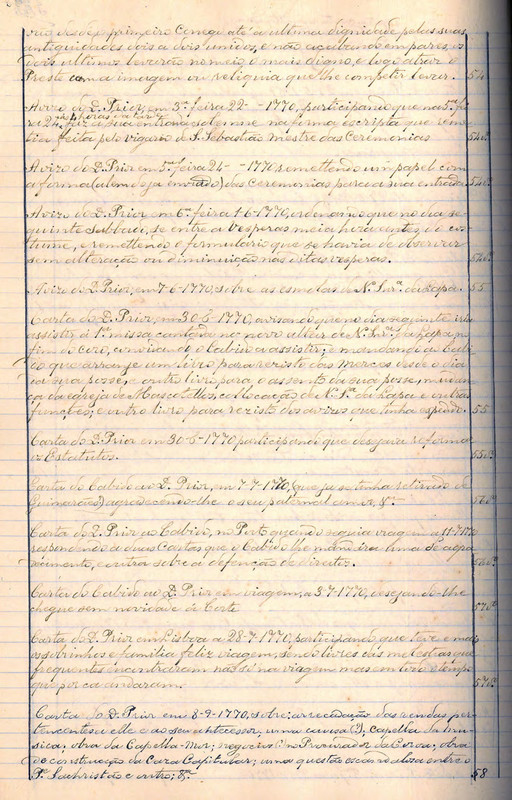 sua desde o primeiro conego até a ultima dignidade pelas suas
antiguidades dois a dois unidos, e não acabando em pares, os
dois ultimos levarão no meio o mais digno, e logo atraz o
Preste com a imagem ou reliquia que lhe competir levar. 54
Aviso do D. Prior, em 3ª feira 22- -1770, participando que na 5ª fei
ra 24, ás 4 horas da tarde, faz a sua entrada solemne na forma escripta que reme
tia, feita pelo vigario de S. Sebastião mestre das Ceremonias 54vº
Aviso do D. Prior em 5ª feira 24- -1770, remettendo um papel com
a forma (alem do já enviado) das ceremonias para a sua entrada 54vº
Aviso do D. Prior em 6ª feira 1-6-1770, ordenando que no dia se-
guinte Sabbado, se entre a Vesperas meia hora antes do cos-
tume, e remettendo o formulario que se havia de observar
sem alteração ou diminuição nas ditas vesperas. 54vº
Aviso do D. Prior, em 7-6-1770, sobre as esmolas de Nª Snrª da Lapa. 55
Carta do D. Prior em 30-6-1770, avisando que no dia seguinte irá
assistir á 1ª missa cantada no novo altar de Nª Snrª da Lapa no
fim do Coro, convidando o Cabido a assistir; e mandando ao Cabi-
do que arranje um livro para registo das Mercês desde o dia
da sua posse, e outro livro para o assento da sua posse, mudan-
ça da egreja de Mascotellos, collocação da Snrª da Lapa e outras
funcções; e outro livro para registo dos avisos que tenha expedido. 55
Carta do D. Prior em 30-6-1770 participando que deseja reformar
os Estatutos. 55vº
Carta do Cabido ao D. Prior em 7-7-1770, (que já se tenha retirado de
Guimarães) agradecendo-lhe o seu paternal amor, &ª. 56vº
Carta do D. Prior ao Cabido, no Porto quando seguia viagem, a 11-7-1770
respondendo a duas Cartas que o Cabido lhe mandára uma de agra-
decimento, e outra sobre a defenção de direitos. 56vº
Carta do Cabido ao D. Prior em viagem, a 3-7-1770, desejando-lhe
chegue sem novidade á Corte 57vº
Carta do D. Prior em Lisboa a 28-7-1770, participando que teve e mais
os sobrinhos e familia feliz viagem, sendo livres das molestias que
frequentes encontraram não só na viagem mas em todo o tempo
que por cá andaram. 57vº
Carta do D. Prior em 8-9-1770, sobre: arrecadação das rendas per-
tencentes a elle e ao seu antecessor, uma causa (?), capella da mu-
sica; obra da Capella-Mor; negocio c/ o Procurador da Coroa; obra
de construcção da Caza Capitular; uma questão escandalosa entre o
Pe Sachristão e outro; &ª. 58